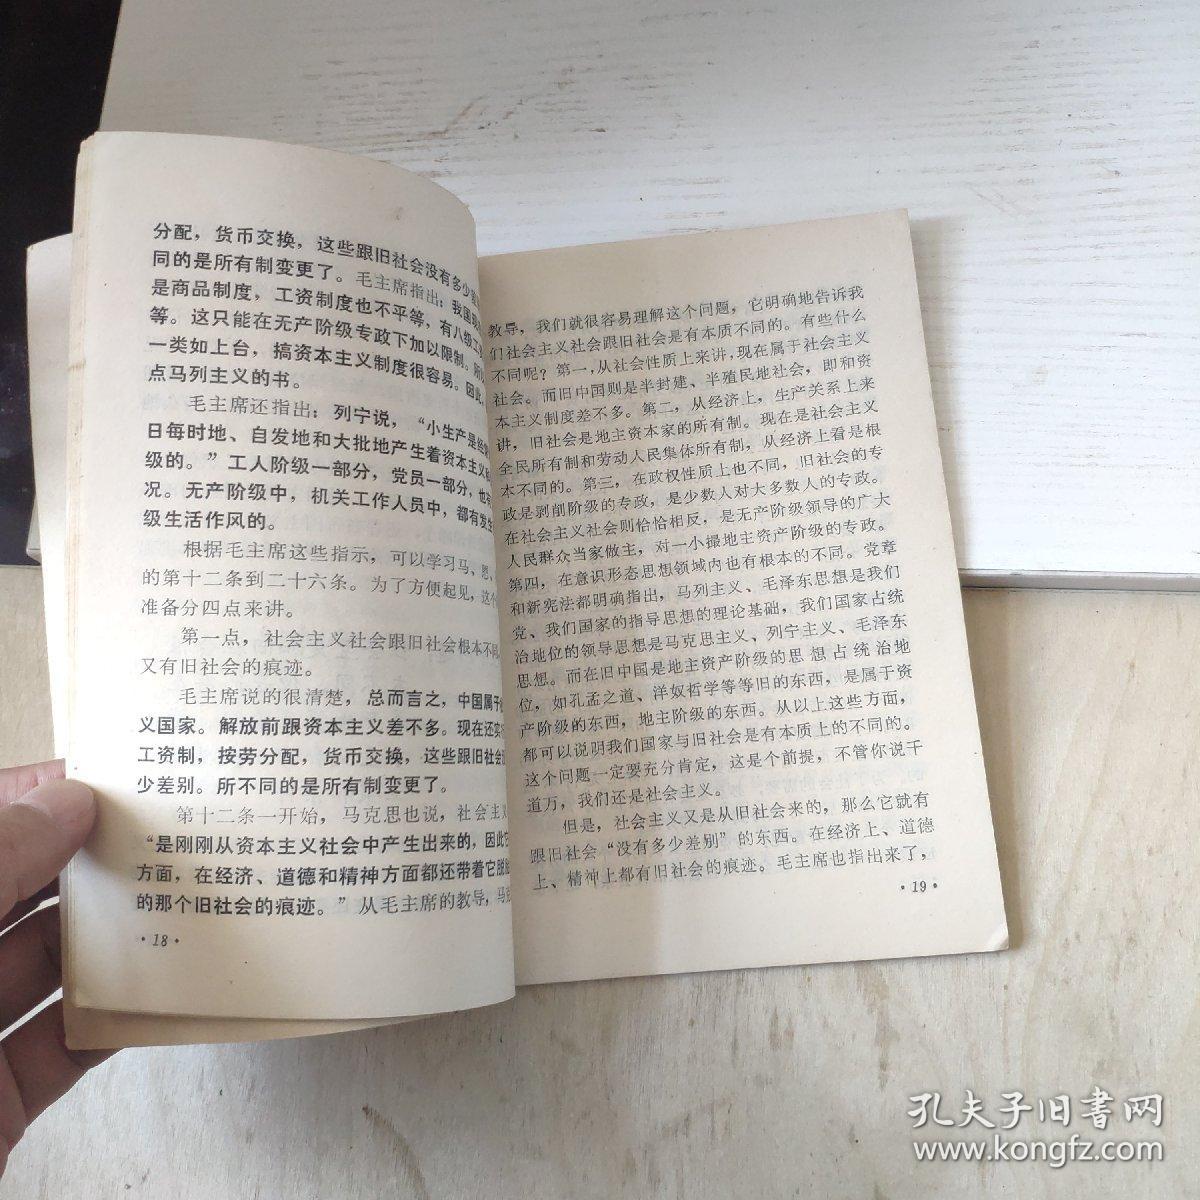 分配，货币交换，这些跟旧社会没有多少差
同的是所有制变更了。毛主席指出：我国
是商品制度，工资制度也不平等，有八级工
等。这只能在无产阶级专政下加以限制。所
一类如上台，搞资本主义制度很容易。因此，
点马列主义的书。
毛主席还指出：列宁说，“小生产是经
日每时地、自发地和大批地产生着资本主义和
级的。”工人阶级一部分，党员一部分，也
况。无产阶级中，机关工作人员中，都有发生
级生活作风的。
根据毛主席这些指示，可以学习马、恩、
的第十二条到二十六条。为了方便起见，这个
准备分四点来讲。
第一点，社会主义社会跟旧社会根本不同，
又有旧社会的痕迹。
毛主席说的很清楚，总而言之，中国属于
义国家。解放前跟资本主义差不多。现在还实
工资制，按劳分配，货币交换，这些跟旧社会
少差别。所不同的是所有制变更了。
第十二条一开始，马克思也说，社会主义
“是刚刚从资本主义社会中产生出来的，因此它
方面，在经济、道德和精神方面都还带着它脱胎
的那个旧社会的痕迹。”从毛主席的教导，马克
·18·
教导，我们就很容易理解这个问题，它明确地告诉我
们社会主义社会跟旧社会是有本质不同的。有些什么
不同呢？第一，从社会性质上来讲，现在属于社会主义
社会。而旧中国则是半封建、半殖民地社会，即和资
本主义制度差不多。第二，从经济上，生产关系上来
讲，旧社会是地主资本家的所有制。现在是社会主义
全民所有制和劳动人民集体所有制，从经济上看是根
本不同的。第三，在政权性质上也不同，旧社会的专
政是剥削阶级的专政，是少数人对大多数人的专政。
在社会主义社会则恰恰相反，是无产阶级领导的广大
人民群众当家做主，对一小撮地主资产阶级的专政。
第四，在意识形态思想领域内也有根本的不同。党章
和新宪法都明确指出，马列主义、毛泽东思想是我们
党、我们国家的指导思想的理论基础，我们国家占统
治地位的领导思想是马克思主义、列宁主义、毛泽东
思想。而在旧中国是地主资产阶级的思想占统治地
位，如孔孟之道、洋奴哲学等等旧的东西，是属于资
产阶级的东西，地主阶级的东西。从以上这些方面，
都可以说明我们国家与旧社会是有本质上的不同的。
这个问题一定要充分肯定，这是个前提，不管你说千
道万，我们还是社会主义。
但是，社会主义又是从旧社会来的，那么它就有
跟旧社会“没有多少差别”的东西。在经济上、道德
上、精神上都有旧社会的痕迹。毛主席也指出来了，
·19·
孔夫子旧书网
www.kongfz.com